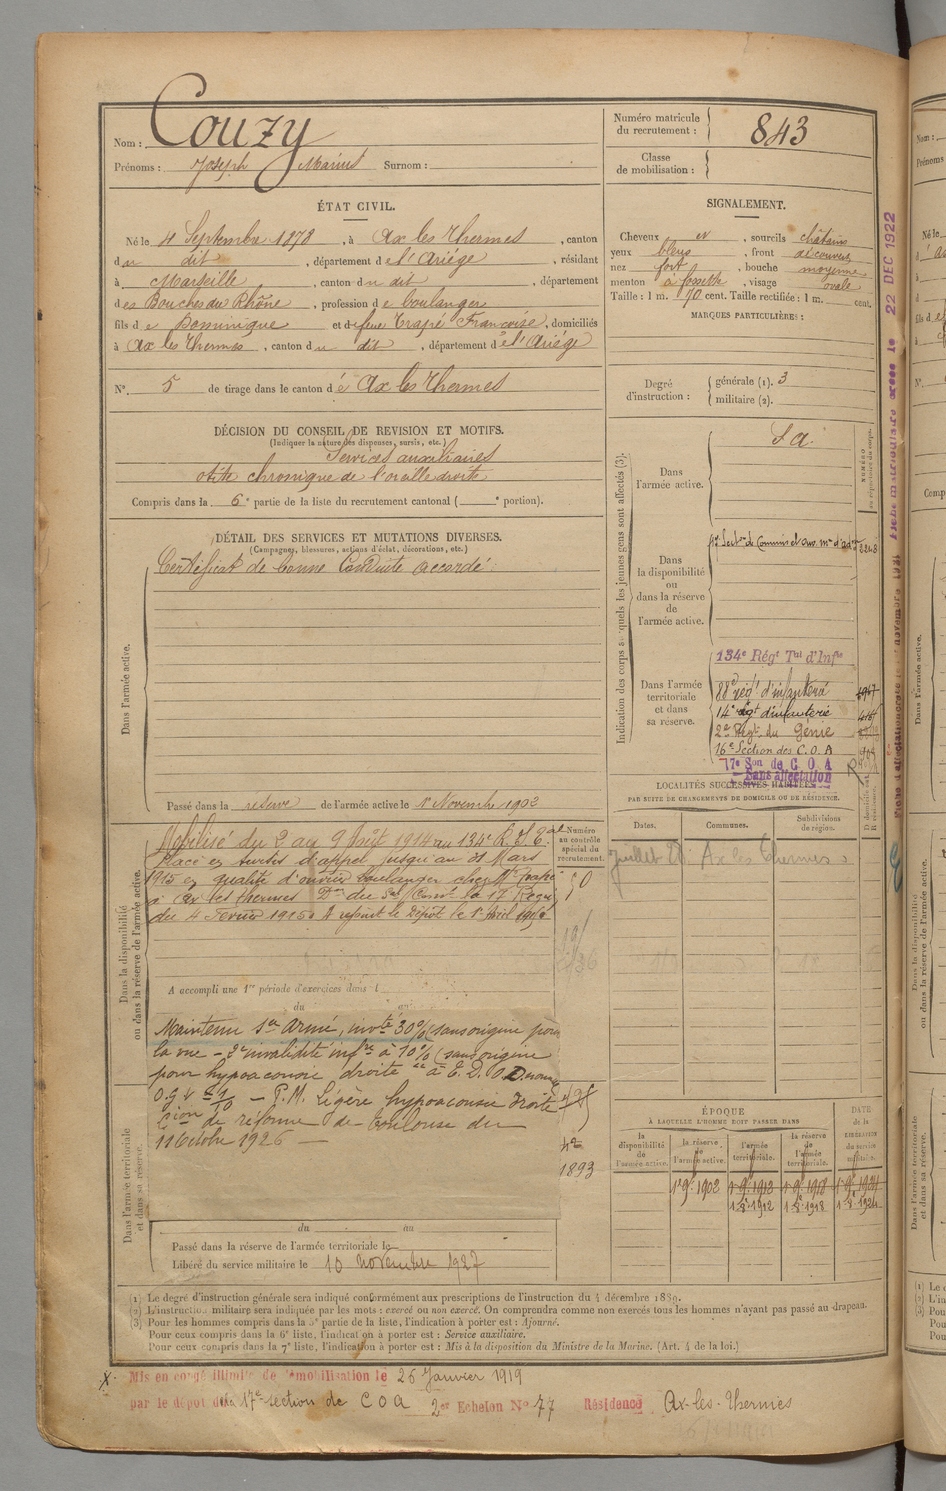 Nom : Couzy
Prénoms : Joseph Marius Surnom :
Numéro matricule du recrutement : 843
Classe de mobilisation :
ÉTAT CIVIL.
Né le 4 Septembre 1878, à Ax les Thermes, canton
du dit, département de l'Ariége, résidant
à Marseille, canton du dit, département
des Bouches du Rhône, profession de boulanger
fils de Dominique et de feue Trapé Françoise, domiciliés
à Ax les Thermes, canton du dit, département de l'Ariége
N° 5 de tirage dans le canton d Ax les Thermes
SIGNALEMENT.
Cheveux et, sourcils châtains
yeux bleus, front découvert
nez fort, bouche moyenne
menton à fossette, visage ovale
Taille : 1 m. 70 cent. Taille rectifiée : 1 m. cent.
MARQUES PARTICULIÈRES :
Degré d'instruction : générale (1). 3
militaire (2).
DÉCISION DU CONSEIL DE REVISION ET MOTIFS.
(Indiquer la nature des dispenses, sursis, etc.)
Services auxiliaires
otite chronique de l'oreille droite
Compris dans la 6e partie de la liste du recrutement cantonal ( e portion).
DÉTAIL DES SERVICES ET MUTATIONS DIVERSES.
(Campagnes, blessures, actions d'éclat, décorations, etc.)
Dans l'armée active.
Certificat de bonne Conduite accordé
Passé dans la réserve de l'armée active le 1er Novembre 1902
Dans la disponibilité ou dans la réserve de l'armée active.
Mobilisé du 2 au 9 Août 1914 au 134e R. I. Tal
Placé en sursis d'appel jusqu'au 31 Mars
1915 en qualité d'ouvrier boulanger chez Mr
à Ax les Thermes Don du Gal Comt la 17e Region
du 4 Fevrier 1915. A rejoint le Dépôt le 1er Avril 1915
Numéro au contrôle spécial du recrutement.
50
A accompli une 1re période d'exercices dans l
du au
Maintenu Sce Armé, invté 30% (sans origine pour
la vue - 2e invalidité infre à 10% (sans origine
pour hypoacousie droite
- P.M. Légère hypoacousie droite
Cion de réforme de Toulouse du
11 Octobre 1926 -
1893
Dans l'armée territoriale et dans sa réserve.
du au
Passé dans la réserve de l'armée territoriale le
Libéré du service militaire le 10 novembre 1927
Indication des corps auxquels les jeunes gens sont affectés (3).
Dans l'armée active. S a.
NUMÉRO
Dans la disponibilité ou dans la réserve de l'armée active.
17e Secton de Commis et ouv. mres d'adon 2248
Dans l'armée territoriale et dans sa réserve.
134e Régt Tal d'Infie
88e régt d'infanterie
14e régt d'infanterie
2e Regt du Génie
16e Section des C.O.A
17e Son de C O A
Sans affectation
22 DEC 1922
LOCALITÉS SUCCESSIVES HABITÉES
PAR SUITE DE CHANGEMENTS DE DOMICILE OU DE RÉSIDENCE.
Dates. Communes. Subdivisions de région. D domicile. R résidence.
Juillet 28 Ax les Thermes
ÉPOQUE
À LAQUELLE L'HOMME DOIT PASSER DANS
la disponibilité de l'armée active.
la réserve de l'armée active.
l'armée territoriale.
la réserve de l'armée territoriale.
DATE de la LIBÉRATION du service militaire.
1er 9bre 1902 1er 9bre 1912 1er 9bre 1918 1er 9bre 1924
1er 8bre 1912 1er 8bre 1918 1er 8bre 1924
(1) Le degré d'instruction générale sera indiqué conformément aux prescriptions de l'instruction du 4 décembre 1889.
(2) L'instruction militaire sera indiquée par les mots : exercé ou non exercé. On comprendra comme non exercés tous les hommes n'ayant pas passé au drapeau.
(3) Pour les hommes compris dans la 5e partie de la liste, l'indication à porter est : Ajourné.
Pour ceux compris dans la 6e liste, l'indication à porter est : Service auxiliaire.
Pour ceux compris dans la 7e liste, l'indication à porter est : Mis à la disposition du Ministre de la Marine. (Art. 4 de la loi.)
Mis en congé illimité de démobilisation le 26 Janvier 1919
par le dépôt de la 17e section de C O A 2e Echelon N° 77 Résidence Ax-les-Thermes